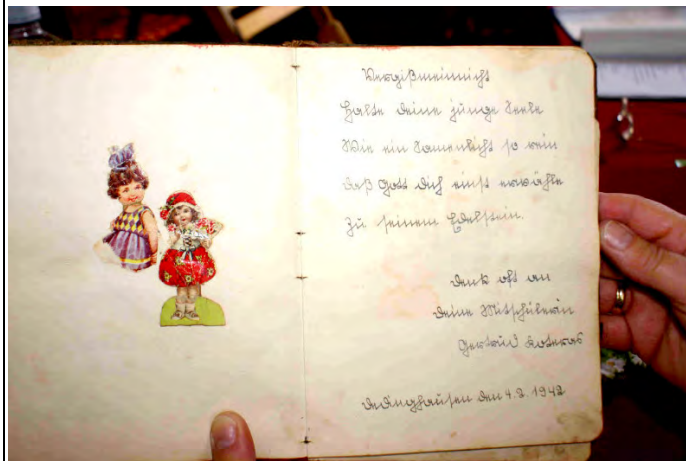 Vergißmeinnicht
Halte deine junge Seele
Wie ein Sonnenlicht so rein
daß Gott dich einst erwähle
zu seinem Edelstein.
Denk oft an
deine Mitschülerin
Gertrud Koteras
Dedinghausen den 4.2.1942